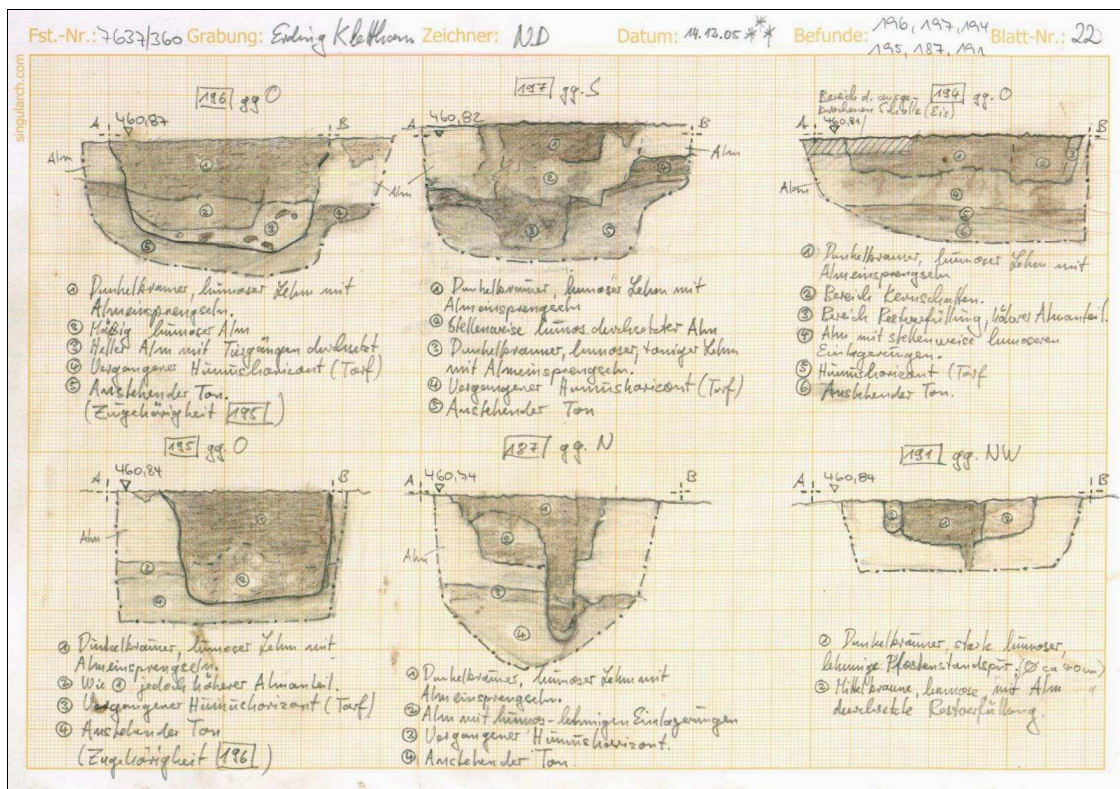 Fst.-Nr.: 7637/360 Grabung: Erding Klettham Zeichner: ND Datum: 14.12.05 ** * Befunde: 196, 197, 194
195, 187, 191 Blatt-Nr.: 22
singularch.com
196 gg O
A 460,87 B
Alm
1
2
3
4
5
① Dunkelbrauner, humoser Lehm mit
Almeinsprengseln.
② Mäßig humoser Alm
③ Heller Alm mit Tiergängen durchsetzt
④ Vergangener Humushorizont (Torf)
⑤ Anstehender Ton.
(Zugehörigkeit 195)
197 gg. S
A 460,82 B
Alm
Alm
1
2
3
4
5
① Dunkelbrauner, humoser Lehm mit
Almeinsprengseln
② Stellenweise humos durchsetzter Alm
③ Dunkelbrauner, humoser, toniger Lehm
mit Almeinsprengseln.
④ Vergangener Humushorizont (Torf)
⑤ Anstehender Ton
194 gg. O
Bereich d. ausge-
brochenen Scholle (Eis)
A 460,81 B
Alm
1
2
3
4
5
6
① Dunkelbrauner, humoser Lehm mit
Almeinsprengseln
② Bereich Kernschatten.
③ Bereich Restverfüllung, höherer Almanteil.
④ Alm, mit stellenweise humoseren
Einlagerungen.
⑤ Humushorizont (Torf
⑥ Anstehender Ton.
195 gg. O
A 460,84 B
Alm
1
2
3
4
① Dunkelbrauner, humoser Lehm mit
Almeinsprengseln.
② Wie ① jedoch höherer Almanteil.
③ Vergangener Humushorizont (Torf)
④ Anstehender Ton
(Zugehörigkeit 196)
187 gg. N
A 460,74 B
Alm
1
2
3
4
① Dunkelbrauner, humoser Lehm mit
Almeinsprengseln.
② Alm mit humos-lehmigen Einlagerungen
③ Vergangener Humushorizont.
④ Anstehender Ton.
191 gg. NW
A 460,84 B
2
1
2
① Dunkelbrauner, stark humoser,
lehmige Pfostenstandspur. (Ø ca 40cm)
② Mittelbraune, humose, mit Alm
durchsetzte Restverfüllung.